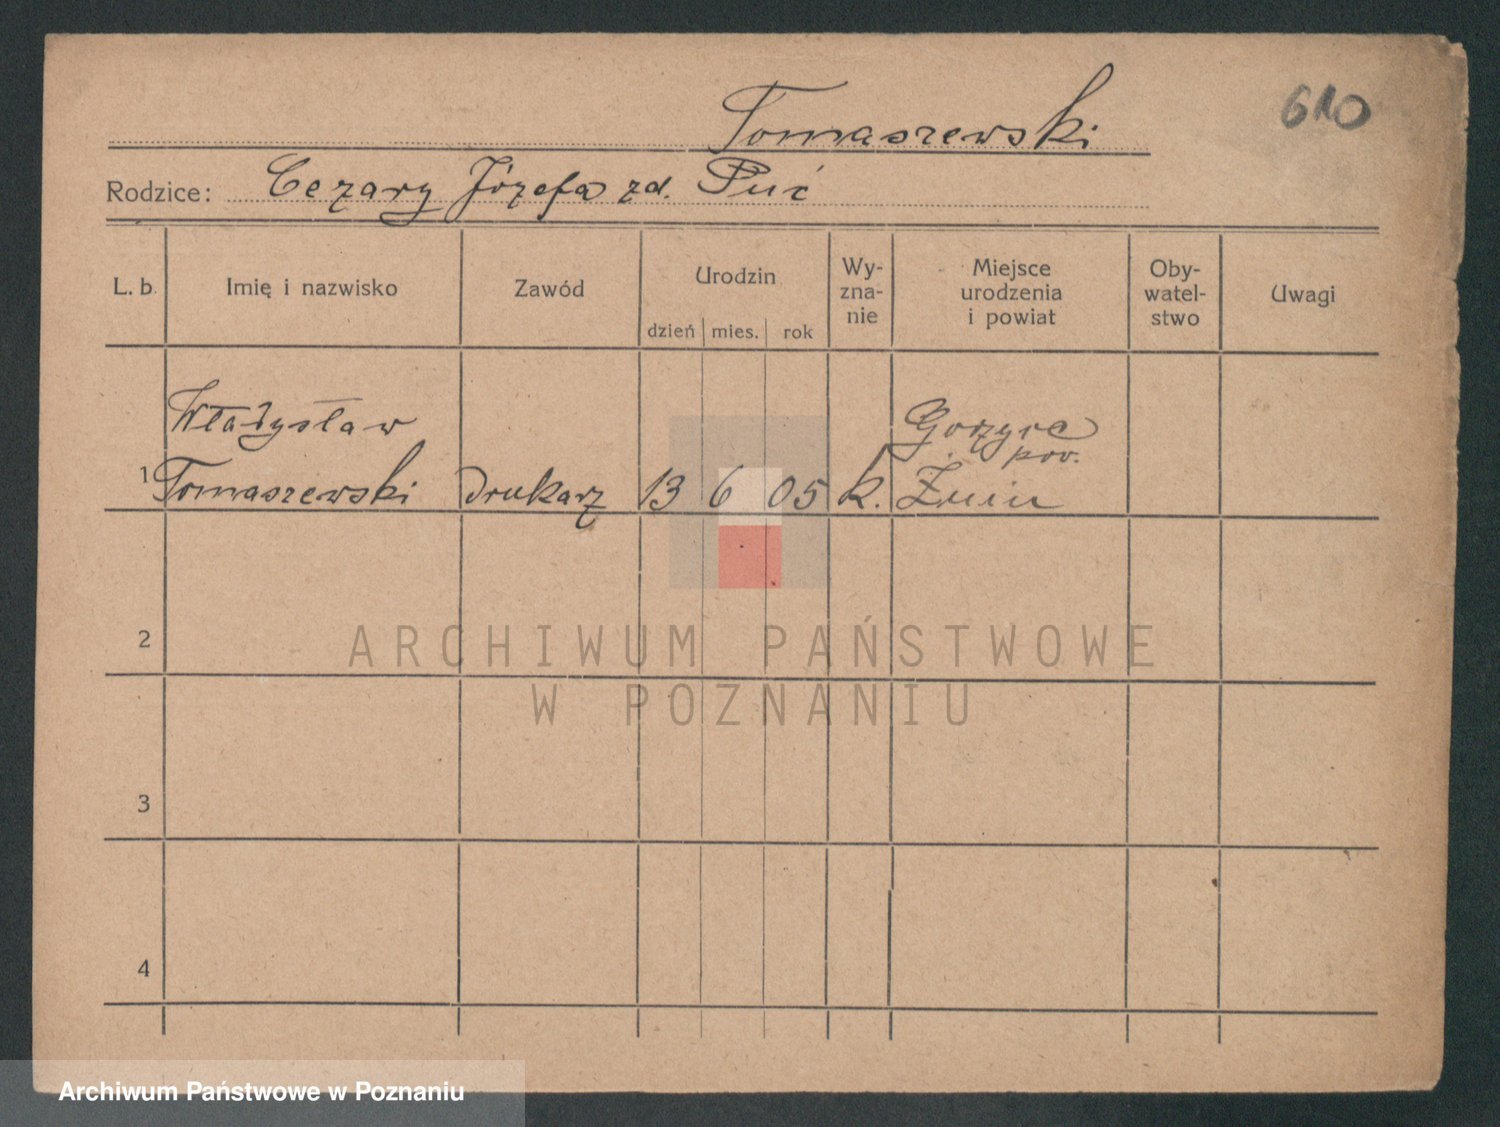 610
Tomaszewski
Rodzice: Cezary Józefa zd. Puć
L. b.
Imię i nazwisko
Zawód
Urodzin
dzień mies. rok
Wy-
zna-
nie
Miejsce
urodzenia
i powiat
Oby-
watel-
stwo
Uwagi
Władysław
Gorzyce
pow.
1 Tomaszewski drukarz 13 6 05 k. Żnin
2
3
4
ARCHIWUM PAŃSTWOWE
W POZNANIU
Archiwum Państwowe w Poznaniu